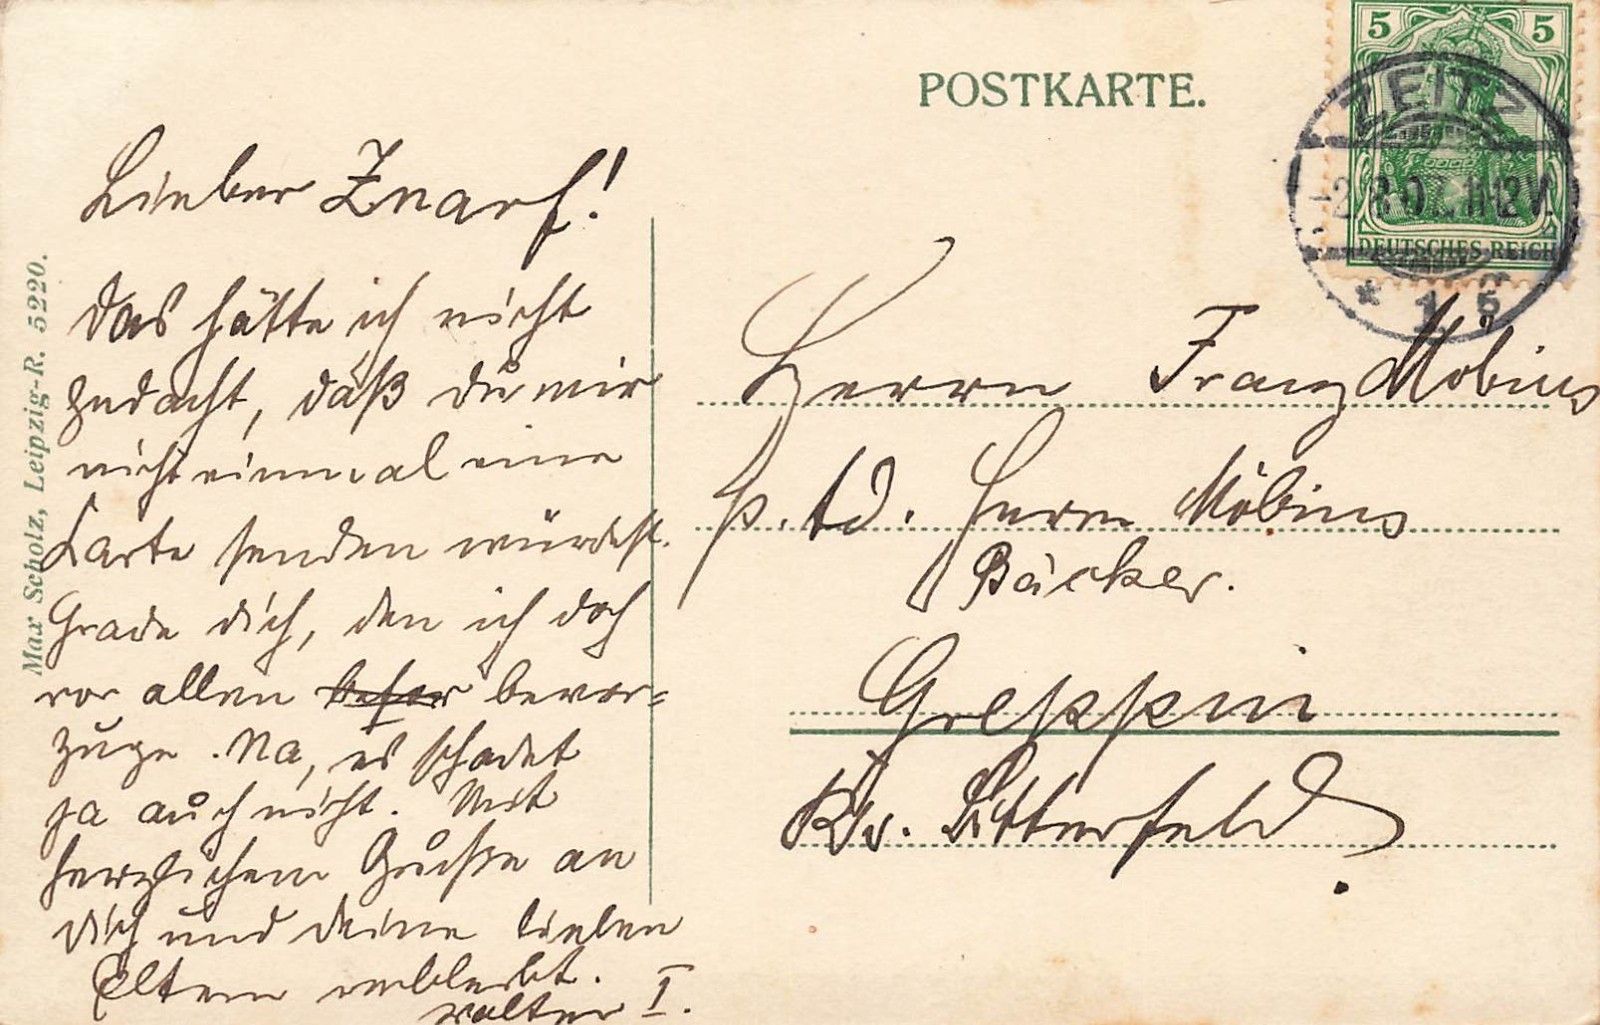 POSTKARTE.
5 5
DEUTSCHES REICH
ZEITZ
* 1
Max Scholz, Leipzig-R. 5220.
Lieber Znarf!
Das hätte ich nicht
gedacht, daß du mir
nicht einmal eine
Karte senden würdest.
Grade dich, den ich doch
vor allen bevor=
zuge. Na, es schadet
ja auch nicht. Mit
herzlichem Gruße an
dich und deine lieben
Eltern verbleibt.
Walter I.
Herrn Franz Möbius
p. Ad. Herrn Möbius
Bäcker.
Greppin
Kr. Bitterfeld